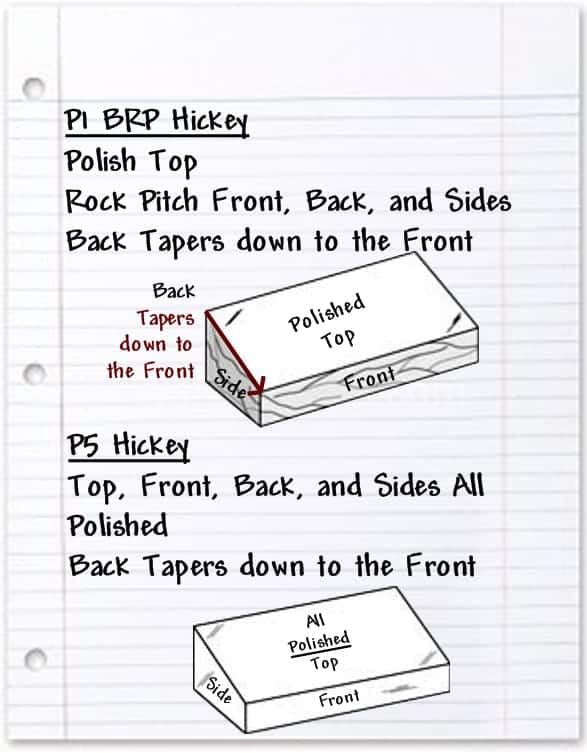 P1 BRP Hickey
Polish Top
Rock Pitch Front, Back, and Sides
Back Tapers down to the Front
Back
Tapers
down to
the Front
Polished
Top
Side
Front
P5 Hickey
Top, Front, Back, and Sides All
Polished
Back Tapers down to the Front
All
Polished
Top
Side
Front